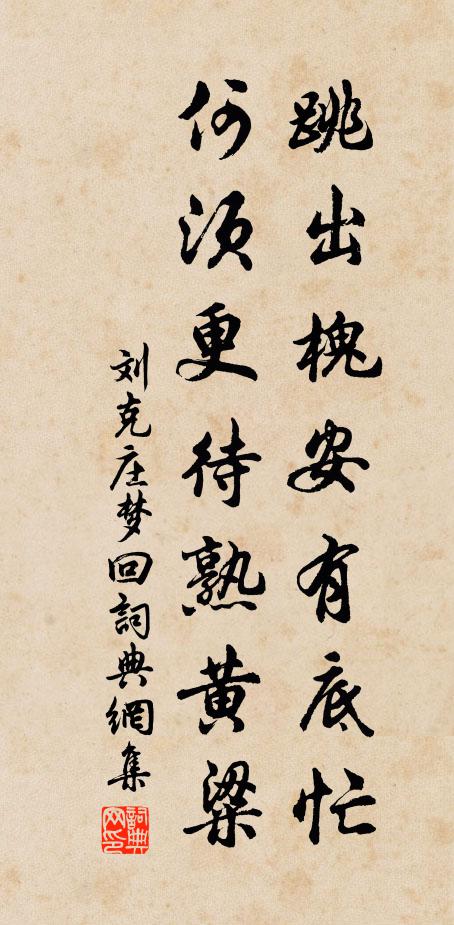 跳出槐安有底忙
何须更待熟黄粱
刘克庄梦回詞典網集
詞典
网印